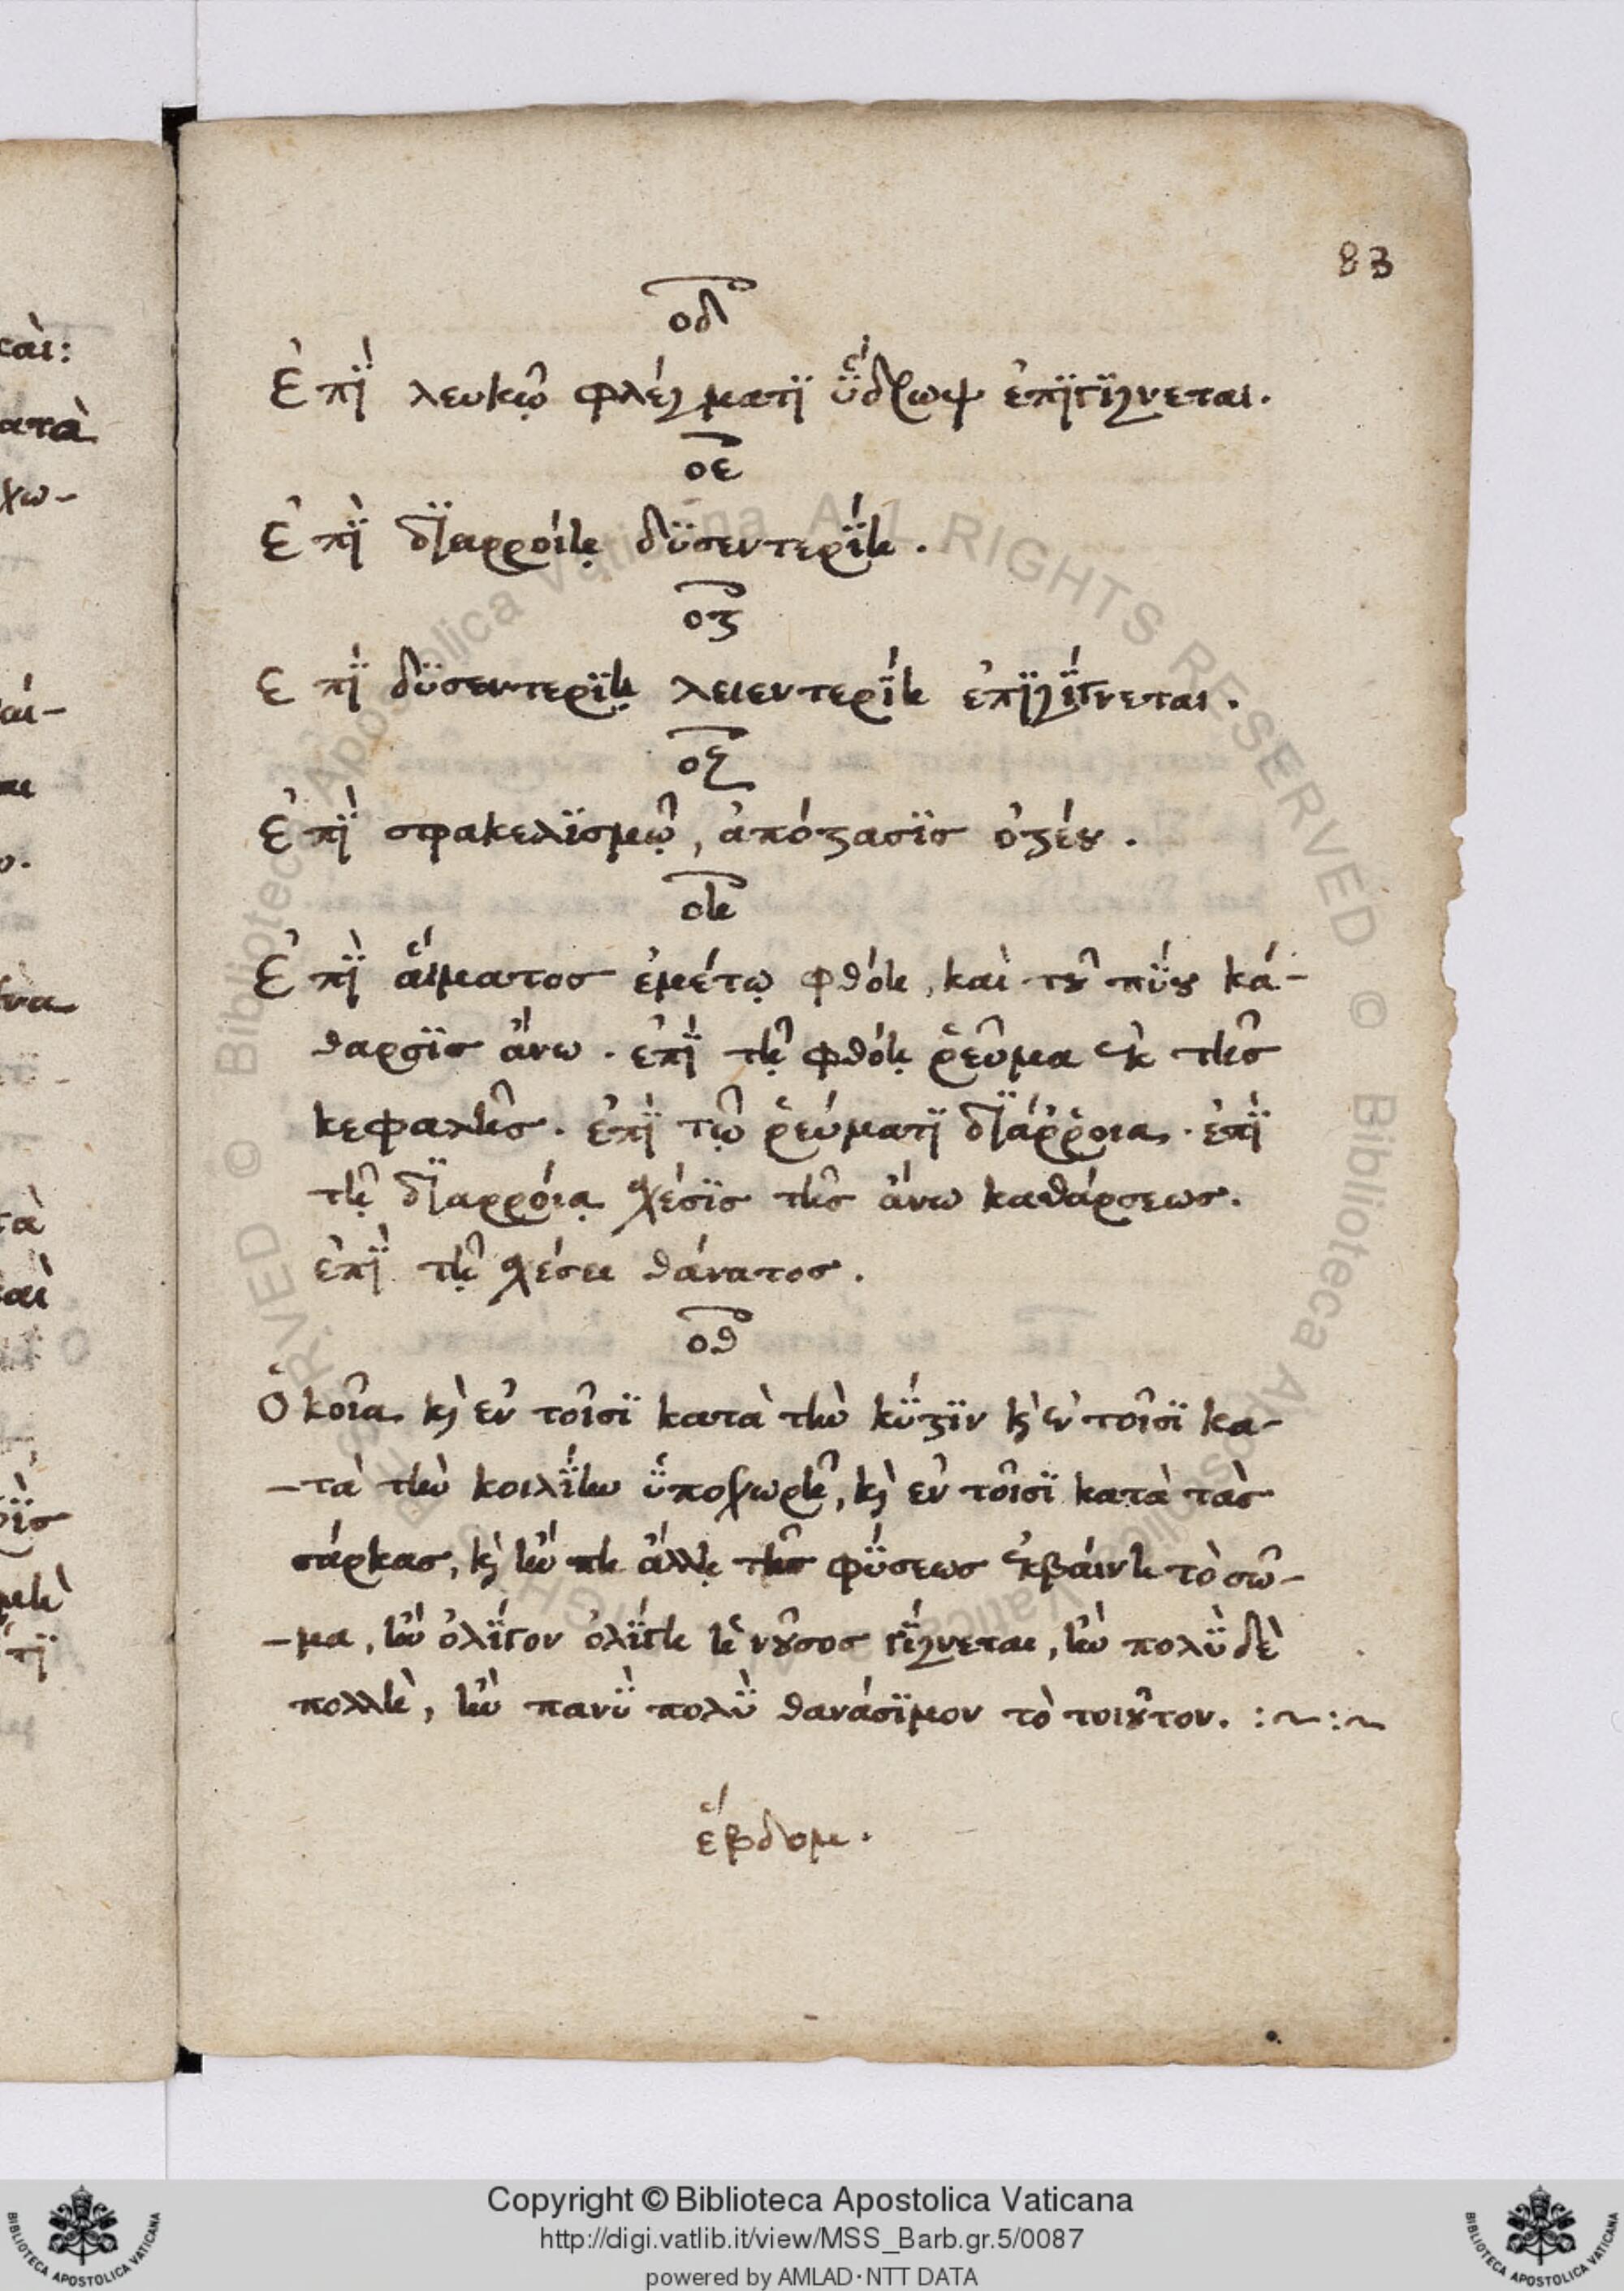 83
οδ
Ἐπΐ λευκῷ φλέγματϊ ὕδρωψ ἐπϊγϊγνεται.
οε
Ἐπῒ δϊαρροίῃ δϋσεντερΐη.
οϛ
Επΐ δϋσεντερϊῃ λειεντερΐη ἐπϊγΐγνεται.
οζ
Ἐπΐ σφακελϊσμῷ, ἀπόϛασϊς ὀϛέȣ.
οη
Ἐπῒ αἵματος ἐμέτῳ φθόη, καὶ τȣ͂ πύȣ κά-
θαρσϊς ἄνω. ἐπΐ τῇ φθόῃ ῥεῦμα ἐκ τῆς
κεφαλῆς. ἐπῒ τῷ ῥεύματϊ δϊάῤῥοια. ἐπῒ
τῇ δϊαρροίᾳ χέσϊς τῆς ἄνω καθάρσεως.
ἐπΐ τῇ χέσει θάνατος.
οθ
Ὁκοῖα κ̀ ἐν τοῖσϊ κατὰ τὴν κύϛϊν κ̀ ἐν τοῖσϊ κα-
-τὰ τὴν κοιλΐην ὑποχωρῆ, κ̀ ἐν τοῖσϊ κατὰ τὰς
σάρκας, κ̀ ἢν πη ἄλλῃ τῆς φύσεως ἐκβαίνη τὸ σῶ-
-μα, ἢν ὀλΐγον ὀλΐγη ἡ νȣ͂σος γΐγνεται, ἢν πολὺ δὲ
πολλὴ, ἢν πανὺ πολὺ θανάσϊμον τὸ τοιȣ͂τον. :~:~
ἕβδομ.
Copyright © Biblioteca Apostolica Vaticana
http://digi.vatlib.it/view/MSS_Barb.gr.5/0087
powered by AMLAD·NTT DATA